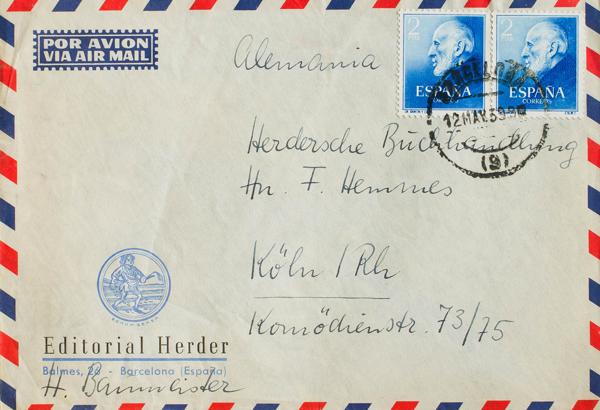 POR AVION
VIA AIR MAIL
Alemania
2
PTAS
ESPAÑA
CORREOS
2
PTAS
ESPAÑA
CORREOS
BARCELONA
12 MAY.
(9)
Herdersche Buchhandlung
Hn. F. Hemmes
Köln/Rh
Komödienstr. 73/75
Editorial Herder
Balmes, 20 - Barcelona (España)
H. Baumeister